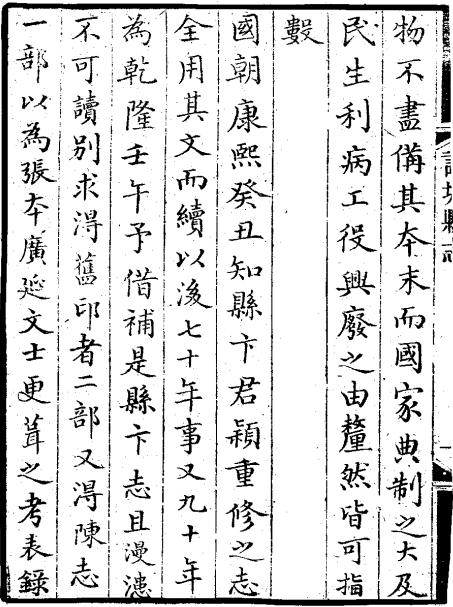 物不盡備其本末而國家典制之大及
民生利病工役興廢之由釐然皆可指
數
國朝康熙癸丑知縣卞君穎重修之志
全用其文而續以後七十年事又九十年
為乾隆壬午予借補是縣卞志且漫漶
不可讀別求得舊印者二部又得陳志
一部以為張本廣延文士更葺之考表錄